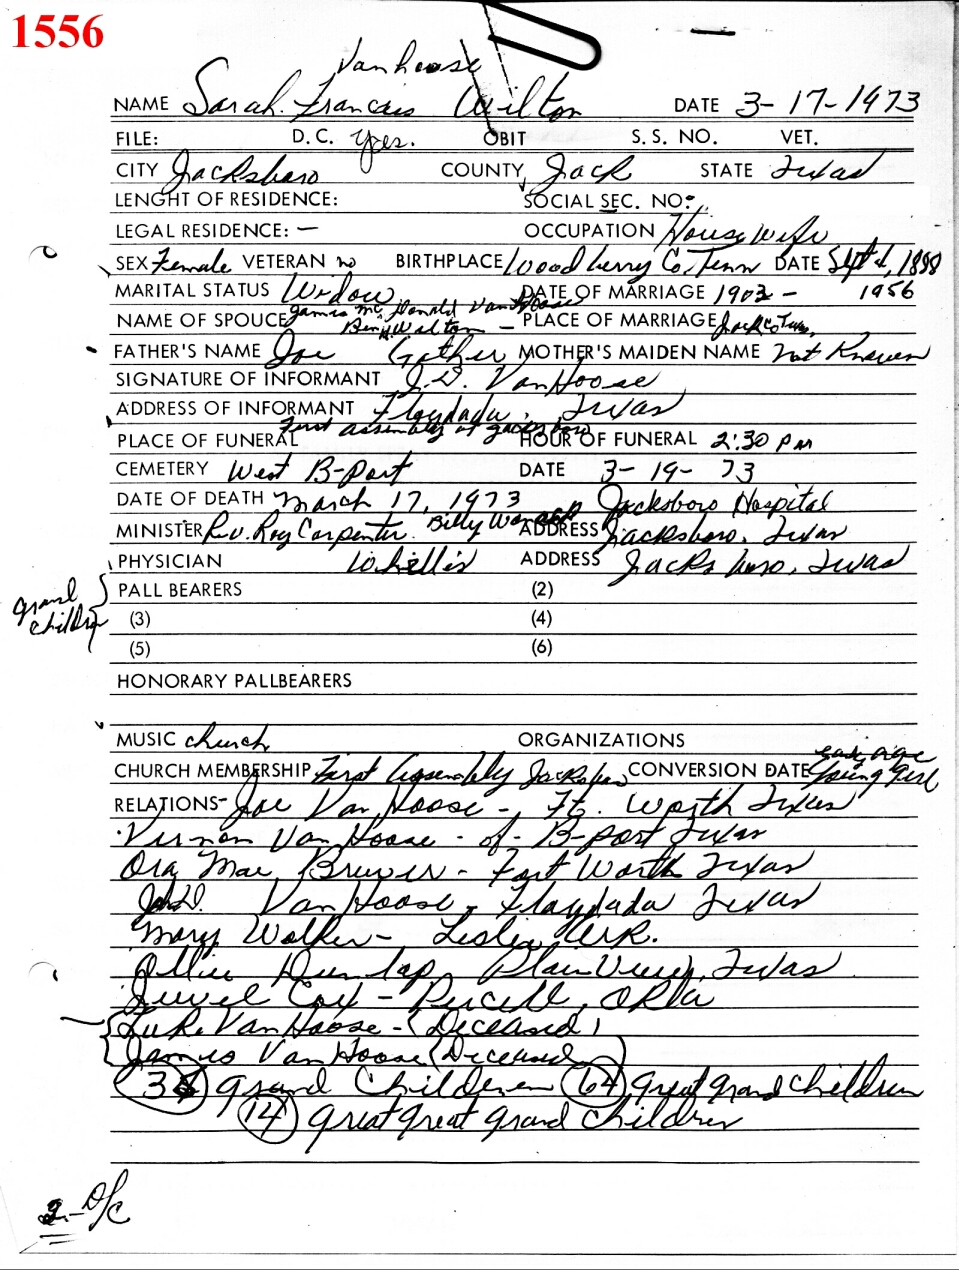 1556
VanHoose
NAME Sarah Francis Wilton DATE 3-17-1973
FILE: D. C. yes. OBIT S. S. NO. VET.
CITY Jacksboro COUNTY Jack STATE Texas
LENGHT OF RESIDENCE: SOCIAL SEC. NO:
LEGAL RESIDENCE: — OCCUPATION House Wife
SEX Female VETERAN no BIRTHPLACE Wood berry Co. Tenn DATE Sept 1, 1888
MARITAL STATUS Widow DATE OF MARRIAGE 1903 - 1956
James Mc Donald VanHoose
NAME OF SPOUCE Ben H. Wilton — PLACE OF MARRIAGE Jack Co Texas,
FATHER'S NAME Joe Gather MOTHER'S MAIDEN NAME not Known
SIGNATURE OF INFORMANT J.D. VanHoose
ADDRESS OF INFORMANT Floydada, Texas
PLACE OF FUNERAL First assembly at Jacksboro HOUR OF FUNERAL 2:30 PM
CEMETERY West B-port DATE 3-19-73
DATE OF DEATH March 17, 1973 Jacksboro Hospital
MINISTER Rev. Roy Carpenter. Billy ADDRESS Jacksboro, Texas
PHYSICIAN ADDRESS Jacksboro, Texas
grand children
PALL BEARERS (2)
(3) (4)
(5) (6)
HONORARY PALLBEARERS
MUSIC church ORGANIZATIONS
CHURCH MEMBERSHIP First Assembly Jacksboro CONVERSION DATE early age Young Girl
RELATIONS- Joe VanHoose - Ft. Worth Texas
Vernon VanHoose - of - B-port Texas
Ora Mae Brewer - Fort Worth Texas
J.D. VanHoose, Floydada Texas
Mary Walker - Leslie, Ark.
Ollie Dunlap, Plainview, Texas
Jewel Cox - Purcell, OKla
{Luke VanHoose - (Deceased)
{James VanHoose (Deceased)
grand Children 64 great grand children
14 great great grand Children
2- D/C